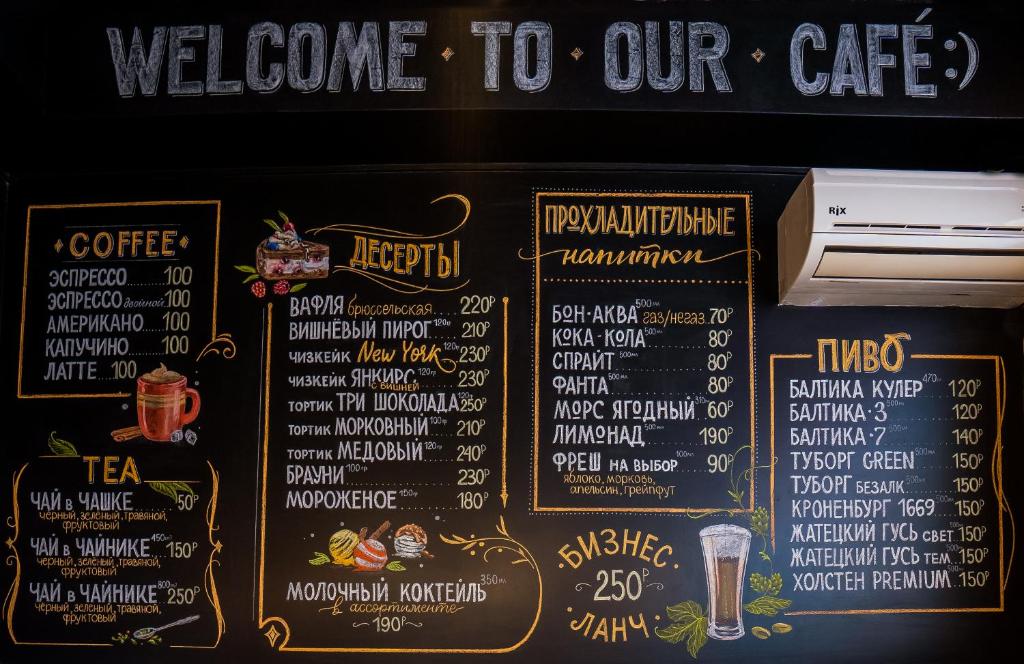 WELCOME · TO · OUR · CAFÉ:)
RIX
COFFEE
ЭСПРЕССО 100
ЭСПРЕССО двойной 100
АМЕРИКАНО 100
КАПУЧИНО 100
ЛАТТЕ 100
TEA
ЧАЙ в ЧАШКЕ 50₽
чёрный, зелёный, травяной,
фруктовый
ЧАЙ в ЧАЙНИКЕ 450мл 150₽
чёрный, зелёный, травяной,
фруктовый
ЧАЙ в ЧАЙНИКЕ 800мл 250₽
чёрный, зелёный, травяной,
фруктовый
ДЕСЕРТЫ
ВАФЛЯ брюссельская 220₽
ВИШНЁВЫЙ ПИРОГ 120гр 210₽
ЧИЗКЕЙК New York 120гр 230₽
ЧИЗКЕЙК ЯНКИРС 120гр 230₽
с вишней
ТОРТИК ТРИ ШОКОЛАДА 120гр 250₽
ТОРТИК МОРКОВНЫЙ 100гр 210₽
ТОРТИК МЕДОВЫЙ 120гр 240₽
БРАУНИ 100гр 230₽
МОРОЖЕНОЕ 150гр 180₽
МОЛОЧНЫЙ КОКТЕЙЛЬ 350мл
в ассортименте
190₽
ПРОХЛАДИТЕЛЬНЫЕ
напитки
БОН-АКВА 500мл газ/негаз 70₽
КОКА-КОЛА 500мл 80₽
СПРАЙТ 500мл 80₽
ФАНТА 500мл 80₽
МОРС ЯГОДНЫЙ 60₽
ЛИМОНАД 500мл 190₽
ФРЕШ НА ВЫБОР 100мл 90₽
яблоко, морковь,
апельсин, грейпфут
·БИЗНЕС·
250₽
·ЛАНЧ·
ПИВО
БАЛТИКА КУЛЕР 470мл 120₽
БАЛТИКА·3 500мл 120₽
БАЛТИКА·7 500мл 140₽
ТУБОРГ GREEN 500мл 150₽
ТУБОРГ БЕЗАЛК. 500мл 150₽
КРОНЕНБУРГ 1669 500мл 150₽
ЖАТЕЦКИЙ ГУСЬ СВЕТ. 500мл 150₽
ЖАТЕЦКИЙ ГУСЬ ТЕМ. 500мл 150₽
ХОЛСТЕН PREMIUM 150₽